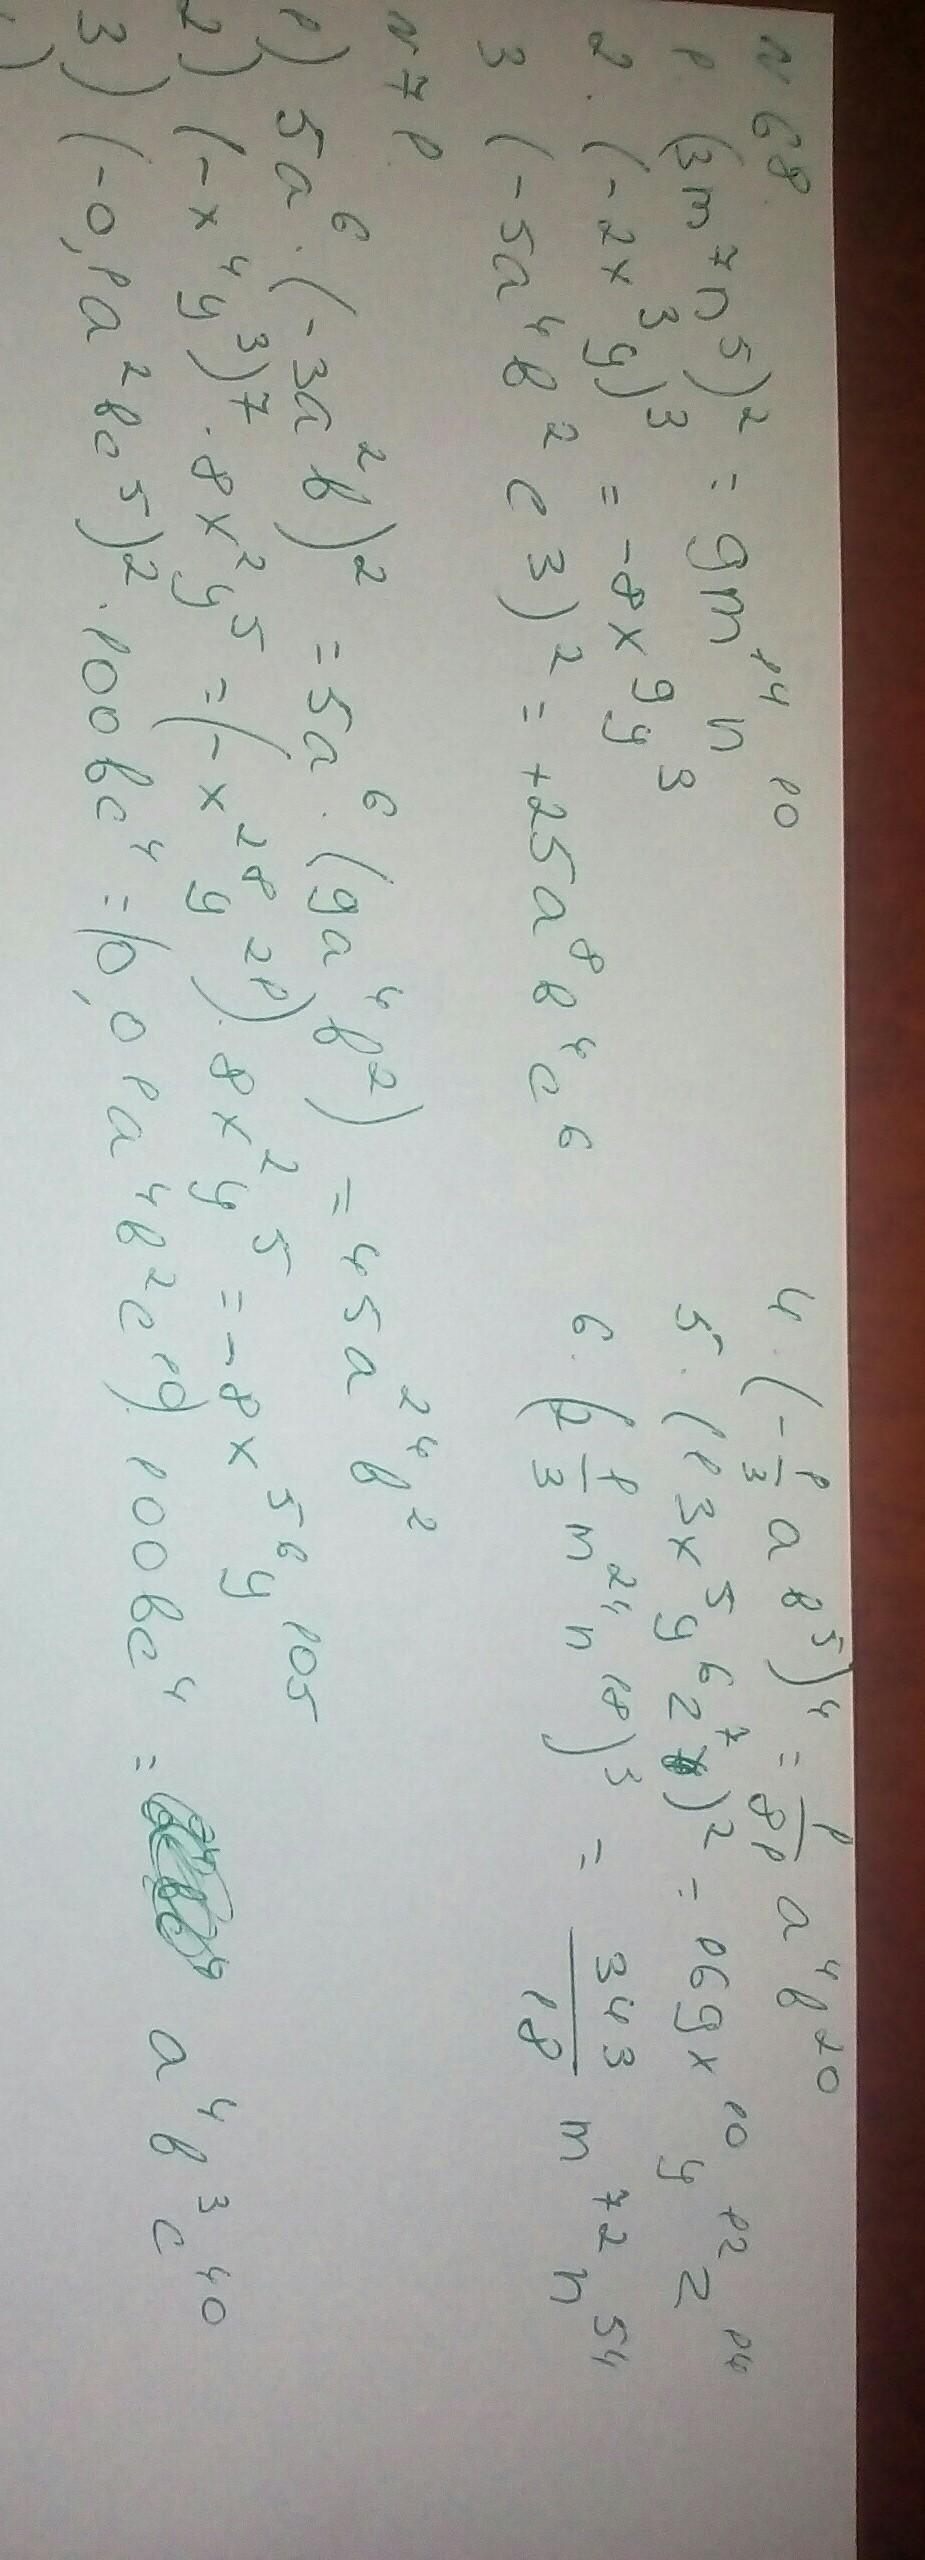 N 68.
1. (3m⁷n⁵)² = 9m¹⁴n¹⁰
2. (-2x³y)³ = -8x⁹y³
3 (-5a⁴b²c³)² = +25a⁸b⁴c⁶
4. (-1/3 ab⁵)⁴ = 1/81 a⁴b²⁰
5. (13x⁵y⁶z⁷)² = 169x¹⁰y¹²z¹⁴
6. (2 1/3 m²⁴n¹⁸)³ = 343/18 m⁷²n⁵⁴
N 71.
1) 5a⁶·(-3a²b)² = 5a⁶·(9a⁴b²) = 45a²⁴b²
2) (-x⁴y³)⁷·8x²y⁵ = (-x²⁸y²¹)·8x²y⁵ = -8x⁵⁶y¹⁰⁵
3) (-0,1a²bc⁵)²·100bc⁴ = (0,01a⁴b²c¹⁰) 100bc⁴ = a⁴b³c⁴⁰